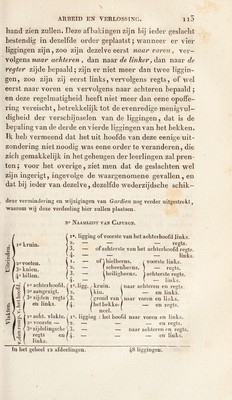 ARBEID EN VERLOSSING. 115
hand zien zullen. Deze afbakingen zijn bij ieder geslacht
bestendig in dezelfde order geplaatst; wanneer er vier
liggingen zijn, zoo zijn dezelve eerst naar voren, ver-
volgens naar achteren, dan naar de linker, dan naar de
regter zijde bepaald; zijn er niet meer dan twee liggin-
gen, zoo zijn zij eerst links, vervolgens regts, of wel
eerst naar voren en vervolgens naar achteren bepaald;
en deze regelmatigheid heeft niet meer dan eene opoffe-
ring vereischt, betrekkelijk tot de evenredige menigvul-
digheid der verschijnselen van de liggingen, dat is de
bepaling van de derde en vierde liggingen van het bekken.
Ik heb vermeend dat het uit hoofde van deze eenige uit-
zondering niet noodig was eene order te veranderen, die
zich gemakkelijk in het geheugen der leerlingen zal pren-
ten; voor het overige, ziet men dat de geslachten wel
zijn ingerigt, ingevolge de waargenomene gevallen, en
dat bij ieder van dezelve, dezelfde wederzijdsche schik-
deze vermindering en wijzigingen van Gardien nog verder uitgestrekt,
waarom wij deze verdeeling hier zullen plaatsen.
3e NAAMLIJST VAN CAPURON.
Uiteinden.
1e. kruin.
2e. voeten.
3e. knieen.
4e. billen.
1e. ligging of voorste van het achterhoofd links.
2e. — — regts.
3e. — of achterste van het achterhoofd regts.
4e. — — links.
1e. — of hielbeens, voorste links.
2e. — scheenbeens, — regts.
3e. — heiligbeens, achterste regts.
4e. — — links.
Vlakten
1e. achterhoofd.
2e. aangezigt.
3e. zijden regts
en links.
1e. ligg. kruin. naar achteren en regts.
2e. — kin. — en links.
3e. — grond van naar voren en links.
4e. — het bekke- — en regts.
neel.
1e. acht. vlakte.
2e. voorste —
3e. zijdelingsche
regts en
links.
1e. ligging: het hoofd naar voren en links.
2e. — — en regts.
3e. — naar achteren en regts.
4e. — — en links.
In het geheel 12 afdeelingen. 48 liggingen.